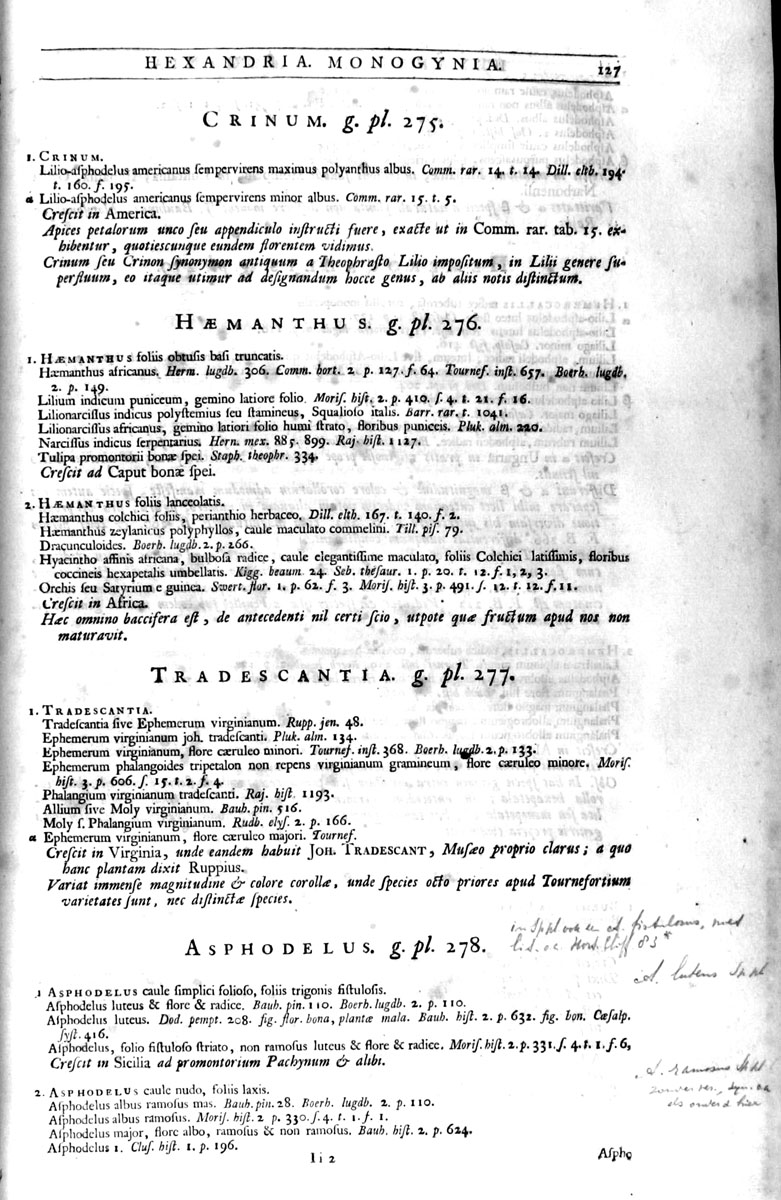 HEXANDRIA. MONOGYNIA.
127
CRINUM. g. pl. 275.
1. CRINUM.
Lilio-aſphodelus americanus ſempervirens maximus polyanthus albus. Comm. rar. 14. t. 14. Dill. elth. 194.
t. 160. f. 195.
α Lilio-aſphodelus americanus sempervirens minor albus. Comm. rar. 15. t. 5.
Creſcit in America.
Apices petalorum unco ſeu appendiculo inſtructi fuere, exacte ut in Comm. rar. tab. 15. ex-
hibentur, quotieſcunque eundem florentem vidimus.
Crinum ſeu Crinon ſynonymon antiquum a Theophraſto Lilio impoſitum, in Lilii genere ſu-
perfluum, eo itaque utimur ad deſignandum hocce genus, ab aliis notis diſtinctum.
HÆMANTHUS. g. pl. 276.
1. HÆMANTHUS foliis obtuſis baſi truncatis.
Hæmanthus africanus. Herm. lugdb. 306. Comm. hort. 2. p. 127. f. 64. Tournef. inſt. 657. Boerh. lugdb.
2. p. 149.
Lilium indicum puniceum, gemino latiore folio. Moriſ. hiſt. 2. p. 410. ſ. 4. t. 21. f. 16.
Lilionarciſſus indicus polyſtemius ſeu ſtamineus, Squalioſo italis. Barr. rar. t. 1041.
Lilionarciſſus africanus, gemino latiori folio humi ſtrato, floribus puniceis. Pluk. alm. 220.
Narciſſus indicus ſerpentarius. Hern. mex. 885. 899. Raj. hiſt. 1127.
Tulipa promontorii bonæ ſpei. Staph. theophr. 334.
Creſcit ad Caput bonæ ſpei.
2. HÆMANTHUS foliis lanceolatis.
Hæmanthus colchici foliis, perianthio herbaceo. Dill. elth. 167. t. 140. f. 2.
Hæmanthus zeylanicus polyphyllos, caule maculato commelini. Till. piſ. 79.
Dracunculoides. Boerh. lugdb. 2. p. 266.
Hyacintho affinis africana, bulboſa radice, caule elegantiſſime maculato, foliis Colchici latiſſimis, floribus
coccineis hexapetalis umbellatis. Kigg. beaum. 24. Seb. theſaur. 1. p. 20. t. 12. f. 1, 2, 3.
Orchis ſeu Satyrium e guinea. Swert. flor. 1. p. 62. f. 3. Moriſ. hiſt. 3. p. 491. ſ. 12. t. 12. f. 11.
Creſcit in Africa.
Hæc omnino baccifera eſt, de antecedenti nil certi ſcio, utpote quæ fructum apud nos non
maturavit.
TRADESCANTIA. g. pl. 277.
1. TRADESCANTIA.
Tradeſcantia ſive Ephemerum virginianum. Rupp. jen. 48.
Ephemerum virginianum joh. tradeſcanti. Pluk. alm. 134.
Ephemerum virginianum, flore cæruleo minori. Tournef. inſt. 368. Boerh. lugdb. 2. p. 133.
Ephemerum phalangoides tripetalon non repens virginianum gramineum, flore cæruleo minore. Moriſ.
hiſt. 3. p. 606. ſ. 15. t. 2. f. 4.
Phalangium virginianum tradeſcanti. Raj. hiſt. 1193.
Allium ſive Moly virginianum. Bauh. pin. 516.
Moly ſ. Phalangium virginianum. Rudb. elyſ. 2. p. 166.
α Ephemerum virginianum, flore cæruleo majori. Tournef.
Creſcit in Virginia, unde eandem habuit JOH. TRADESCANT, Muſæo proprio clarus; a quo
hanc plantam dixit Ruppius.
Variat immenſe magnitudine & colore corollæ, unde ſpecies octo priores apud Tournefortium
varietates ſunt, nec diſtinctæ ſpecies.
ASPHODELUS. g. pl. 278.
1 ASPHODELUS caule ſimplici folioſo, foliis trigonis fiſtuloſis.
Aſphodelus luteus & flore & radice. Bauh. pin. 110. Boerh. lugdb. 2. p. 110.
Aſphodelus luteus. Dod. pempt. 208. fig. flor. bona, plantæ mala. Bauh. hiſt. 2. p. 632. fig. bon. Cæſalp.
ſyſt. 416.
Aſphodelus, folio fiſtuloſo ſtriato, non ramoſus luteus & flore & radice. Moriſ. hiſt. 2. p. 331. ſ. 4. t. 1. f. 6,
Creſcit in Sicilia ad promontorium Pachynum & alibi.
2. ASPHODELUS caule nudo, foliis laxis.
Aſphodelus albus ramoſus mas. Bauh. pin. 28. Boerh. lugdb. 2. p. 110.
Aſphodelus albus ramoſus. Moriſ. hiſt. 2 p. 330. ſ. 4. t. 1. f. 1.
Aſphodelus major, flore albo, ramoſus & non ramoſus. Bauh. hiſt. 2. p. 624.
Aſphodelus 1. Cluſ. hiſt. 1. p. 196.
Ii 2
Aſpho
in Sppl ook een A. fistulosus, met
Hort. Cliff 83
A. luteus Sppl
A. ramosus Sppl